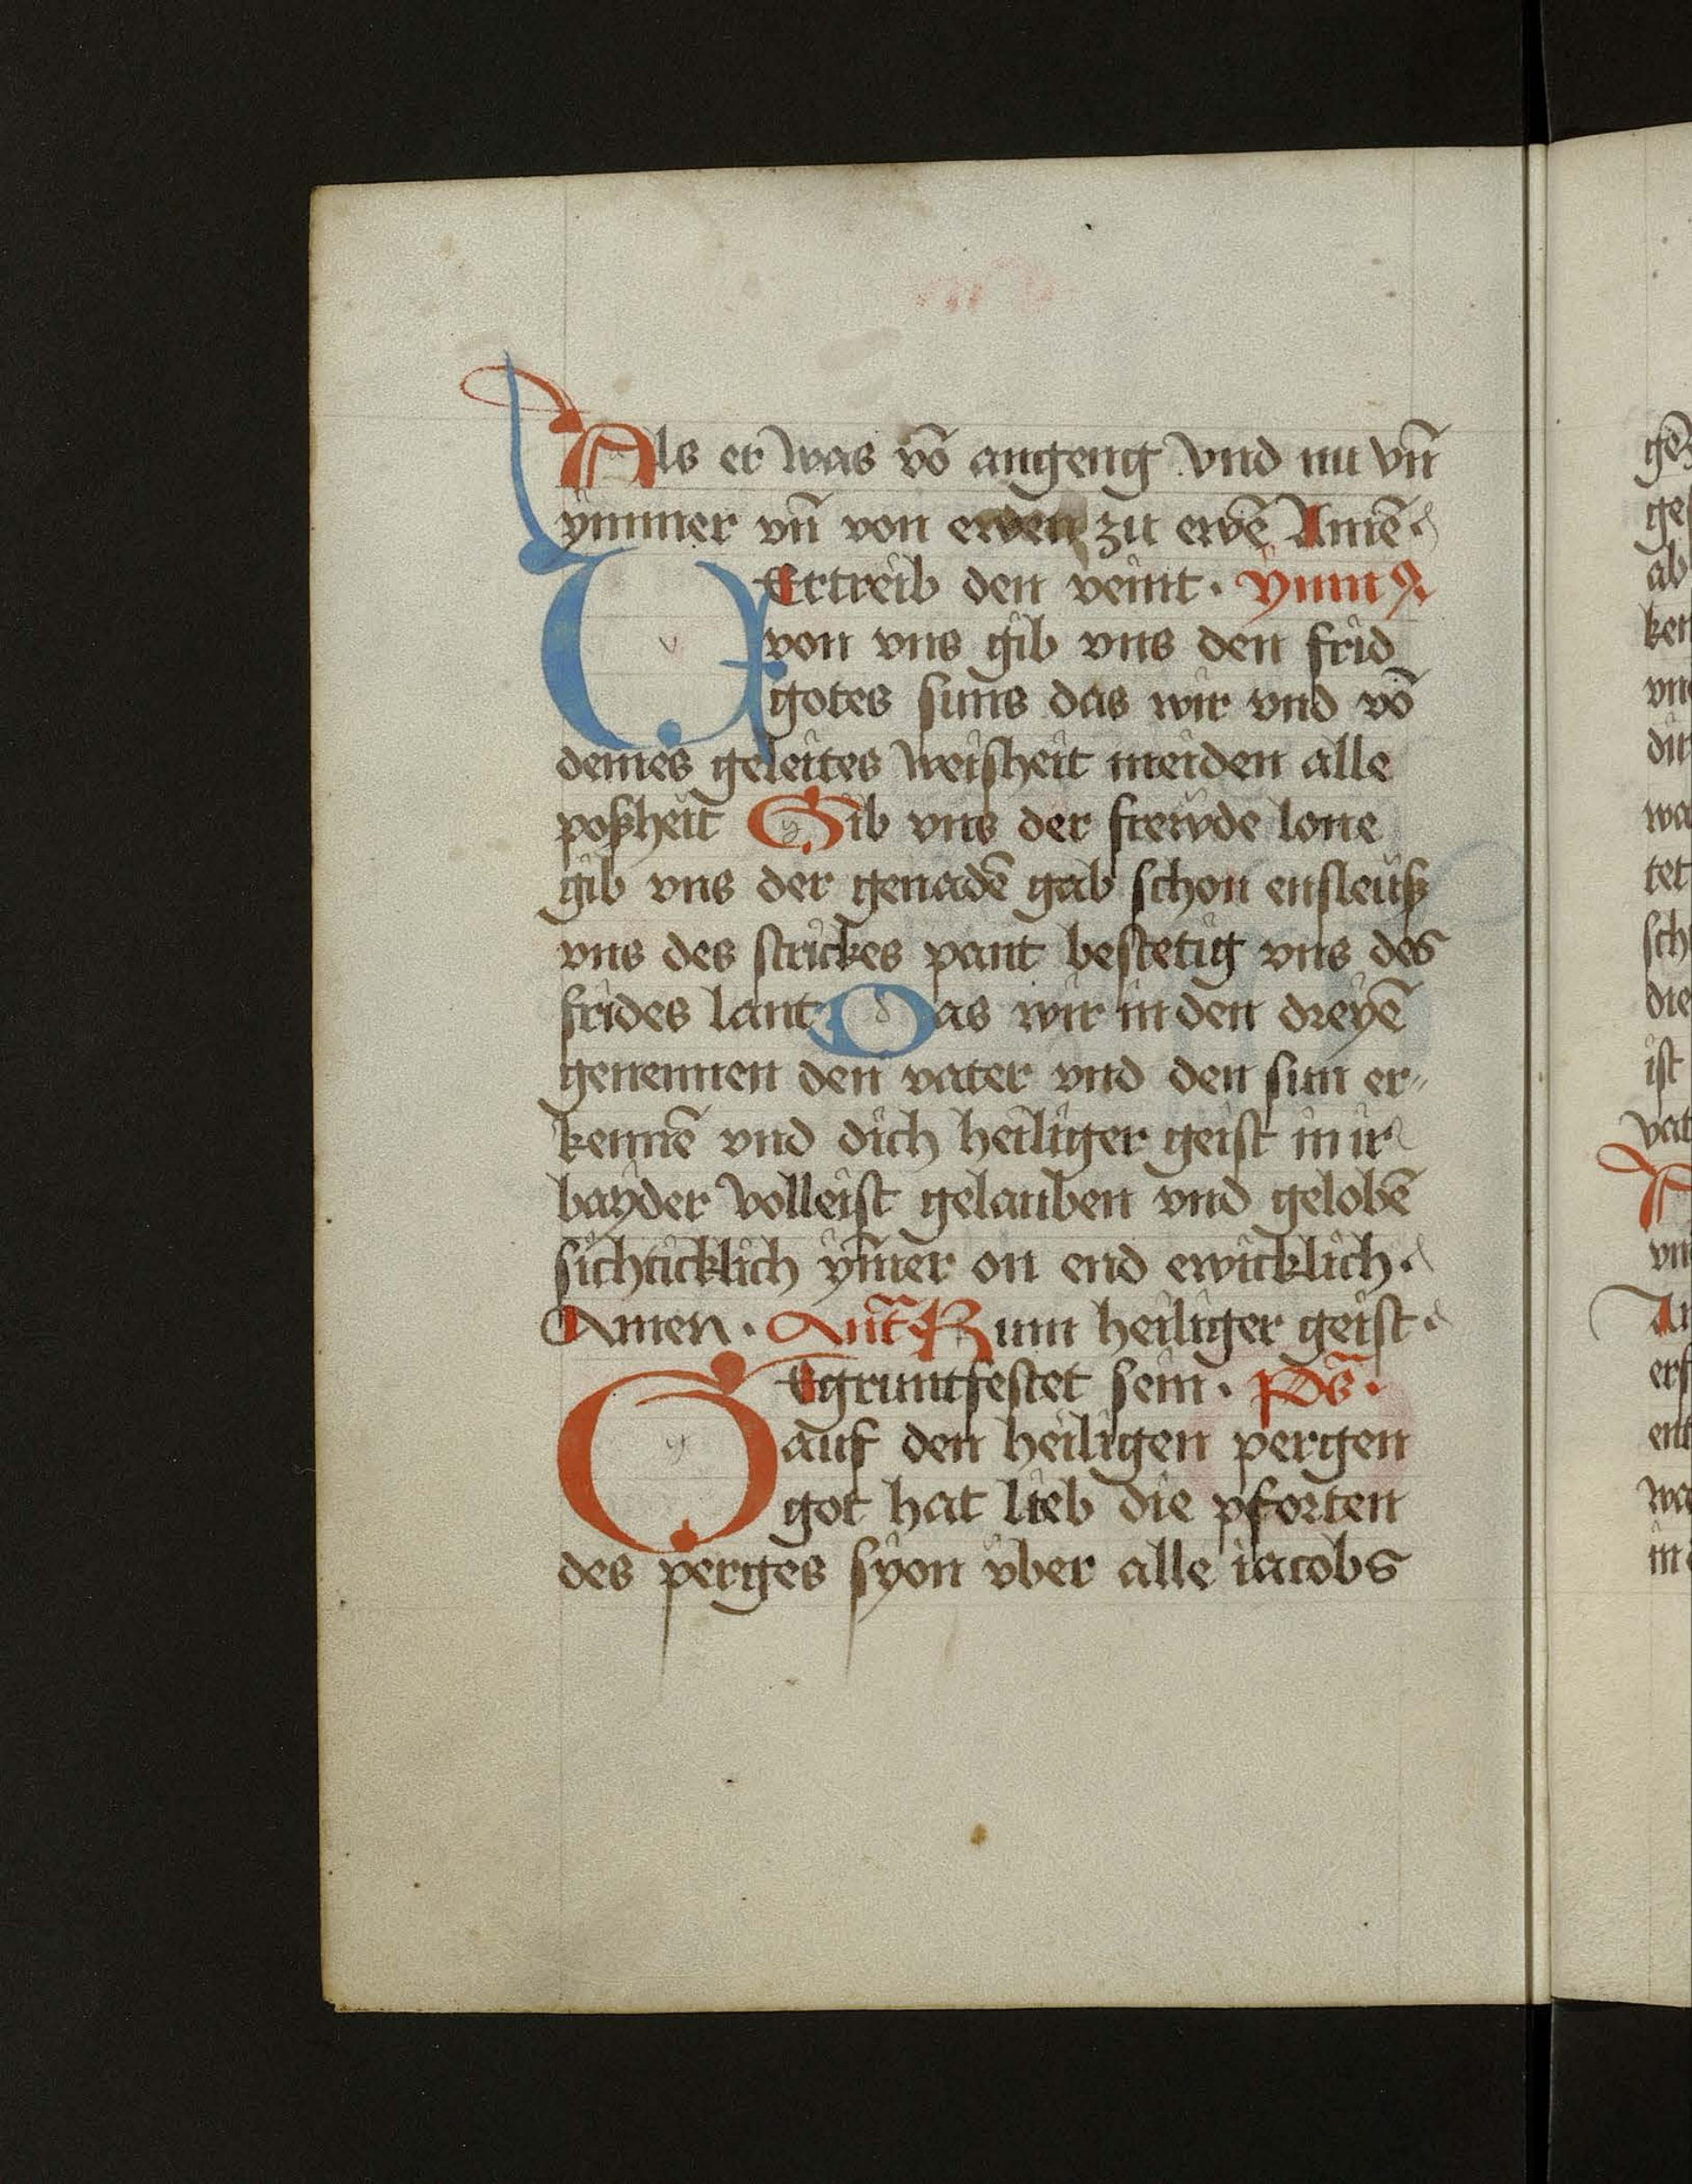 Als er was vō angeng vnd nu vn̄
ymmer vn̄ von ewen zu ewē Amē
VErtreib den veint. ymnꝰ
von vns gib vns den frid
gotes suns das wir vnd vō
deines geleites weisheit meiden alle
poßheit Gib vns der frewde lone
gib vns der genadē gab schon ensleuß
vns des strickes pant bestetig vns des
frides lant Das wir in den dreyē
genennen den vater vnd den sun er⸗
kennē vnd dich heiliger geist in ir
bayder volleist gelauben vnd gelobē
sichticklich ym̄er on end ewicklich.
Amen. Ant̄ Kum heiliger geist
GEgruntfestet sein. ps̄.
auf den heiligen pergen
got hat lieb die pforten
des perges syon vber alle iacobs